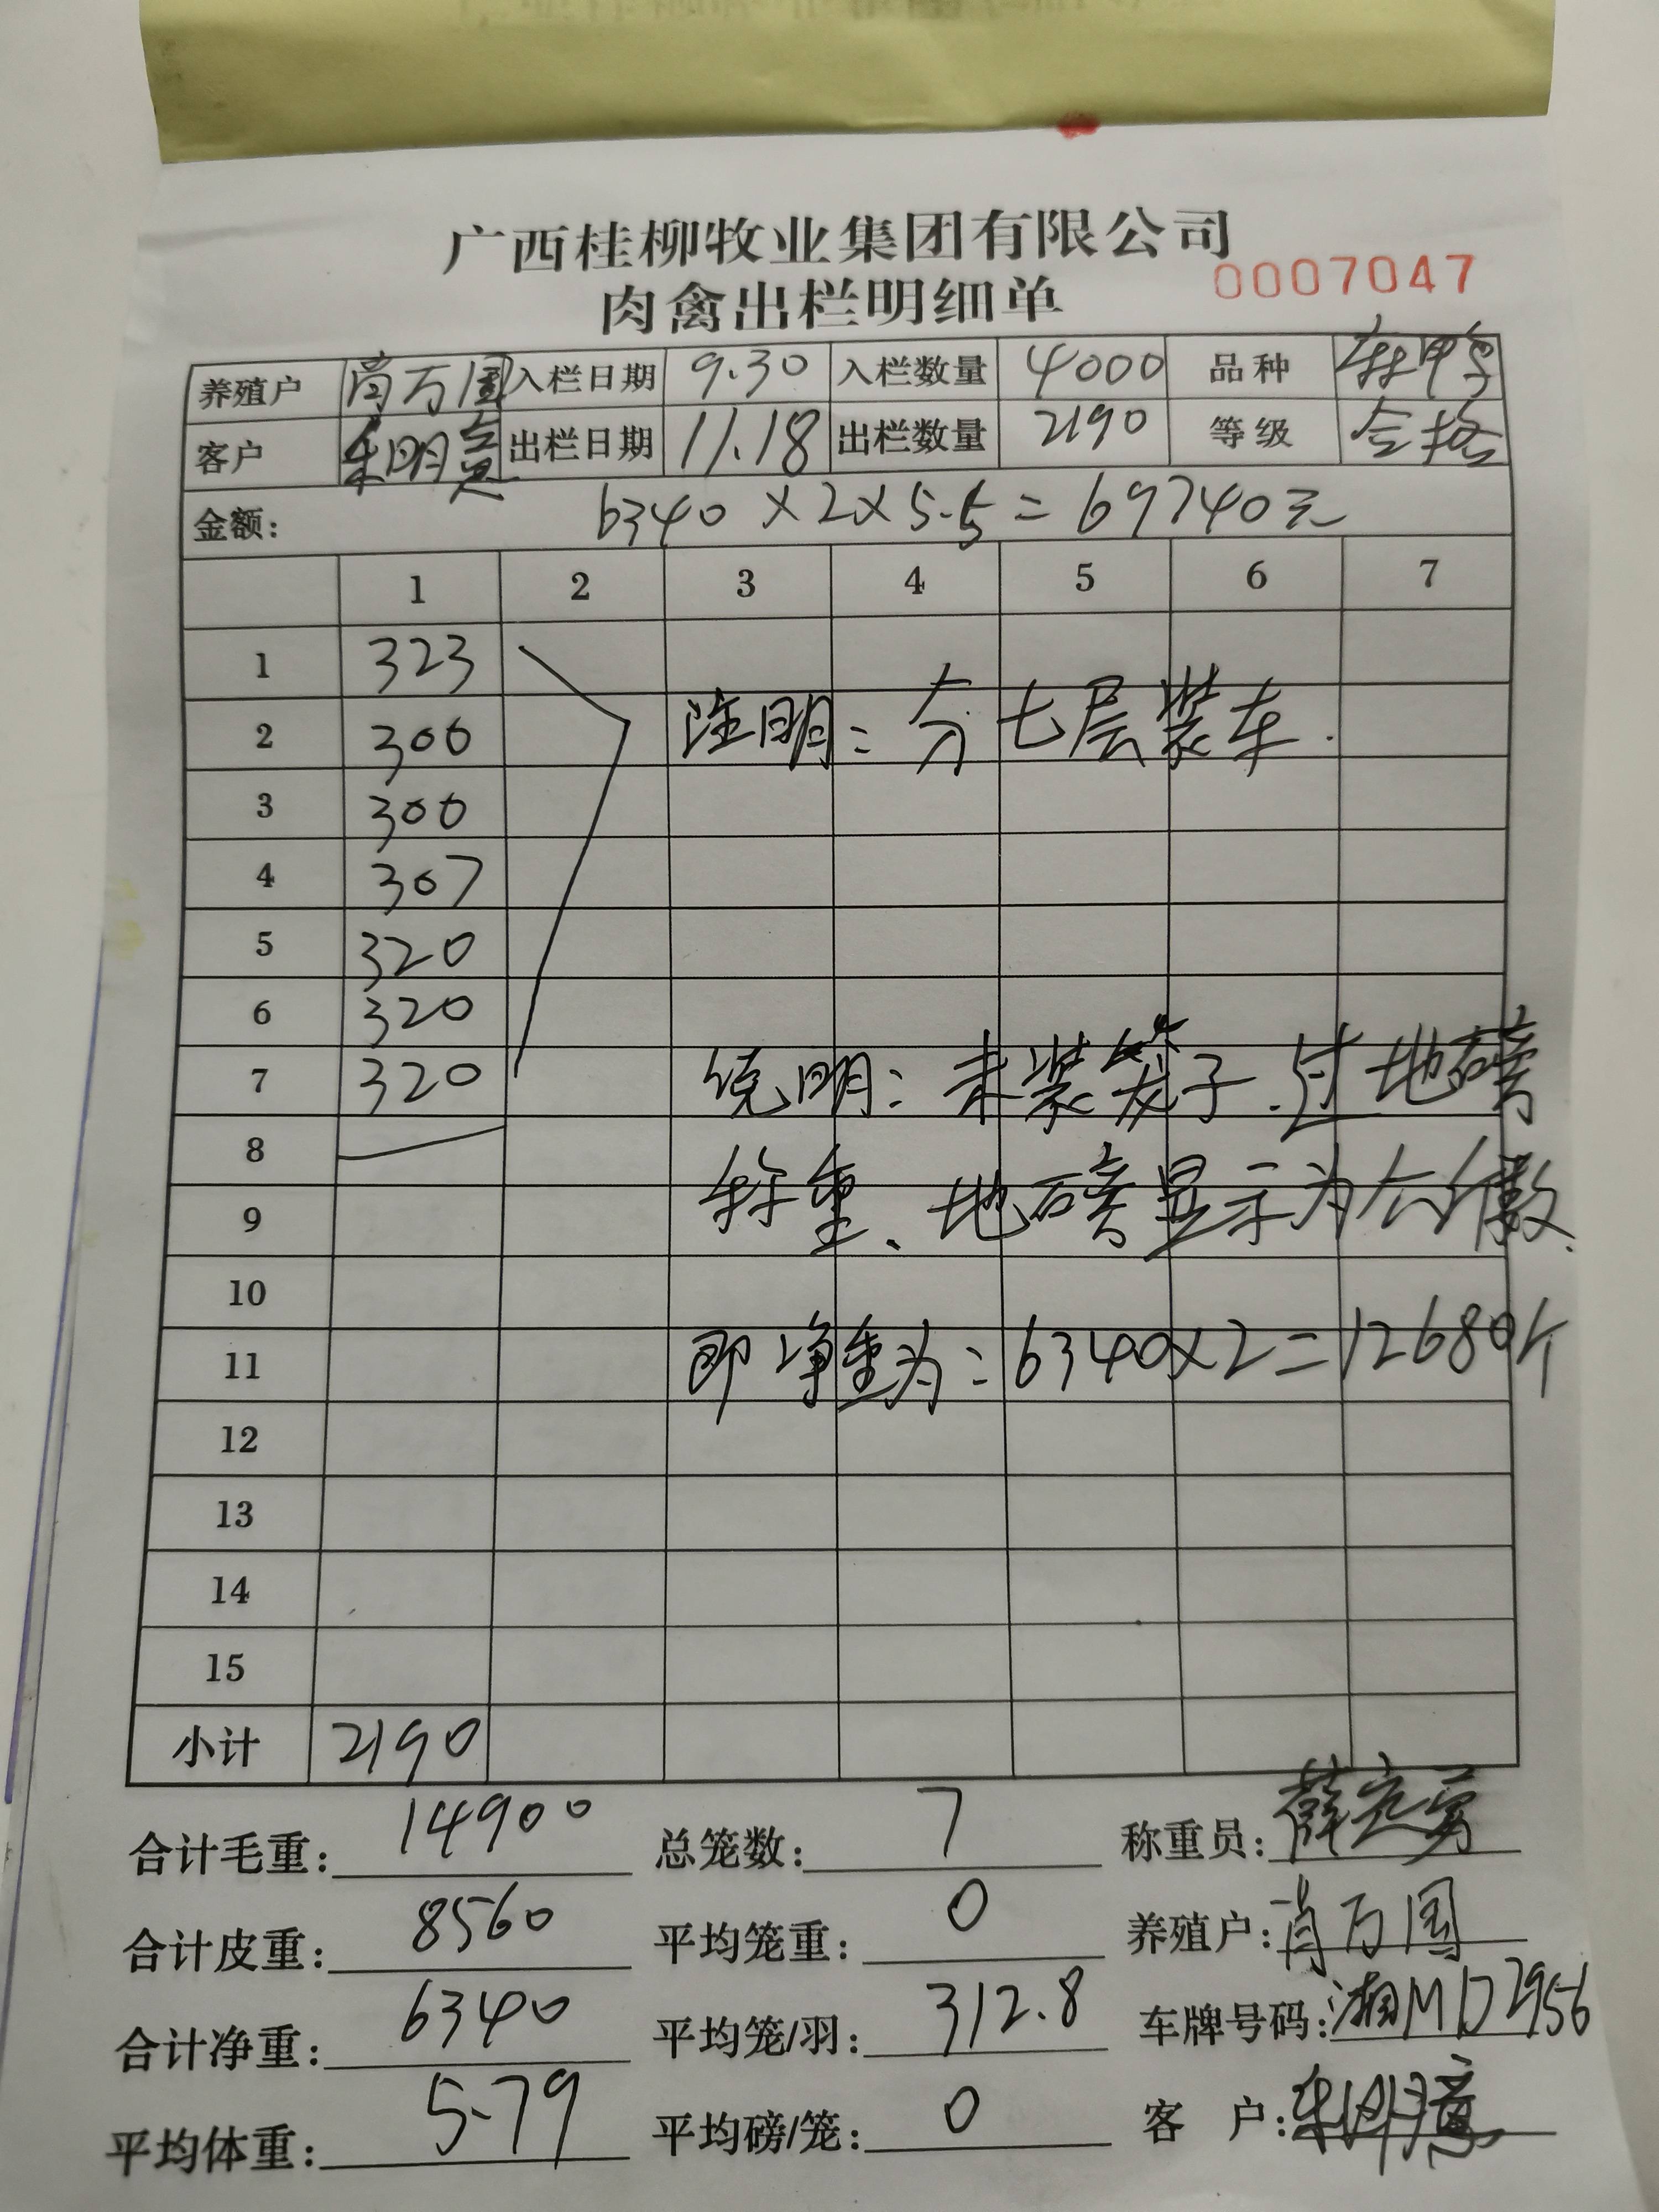 广西桂柳牧业集团有限公司
肉禽出栏明细单 0007047
养殖户 肖万国 入栏日期 9.30 入栏数量 4000 品种
客户 朱明 出栏日期 11.18 出栏数量 2190 等级 合格
金额: 6340×2×5.5=69740元
1 2 3 4 5 6 7
1 323
2 300 注明:分七层装车.
3 300
4 307
5 320
6 320
7 320 说明:未装笼子.过地磅
8
9 称重、地磅显示为公斤数、
10
11 即净重为:6340×2=12680斤
12
13
14
15
小计 2190
合计毛重: 14900 总笼数: 7 称重员: 薛
合计皮重: 8560 平均笼重: 0 养殖户: 肖万国
合计净重: 6340 平均笼/羽: 312.8 车牌号码: 湘MD2956
平均体重: 5.79 平均磅/笼: 0 客 户: 朱明